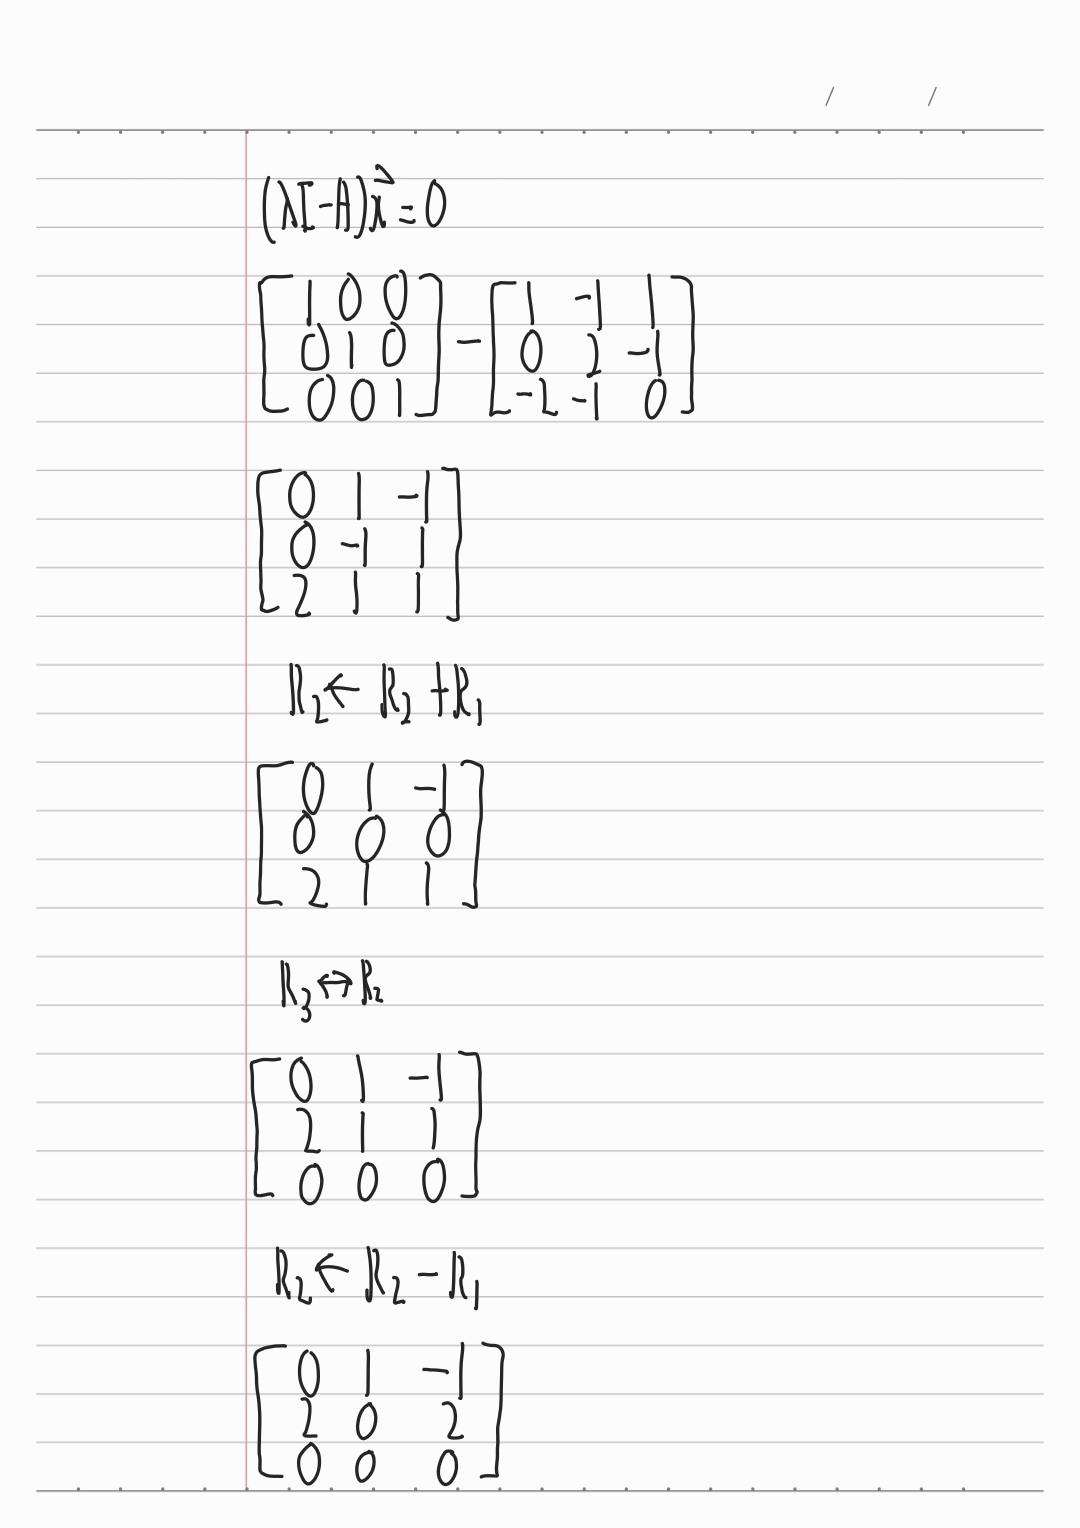 (λI-A)x⃗=0
[1 0 0] - [1 -1 1]
[0 1 0] [0 2 -1]
[0 0 1] [-2 -1 0]
[0 1 -1]
[0 -1 1]
[2 1 1]
R₂ ← R₂ + R₁
[0 1 -1]
[0 0 0]
[2 1 1]
R₃ ↔ R₂
[0 1 -1]
[2 1 1]
[0 0 0]
R₂ ← R₂ - R₁
[0 1 -1]
[2 0 2]
[0 0 0]